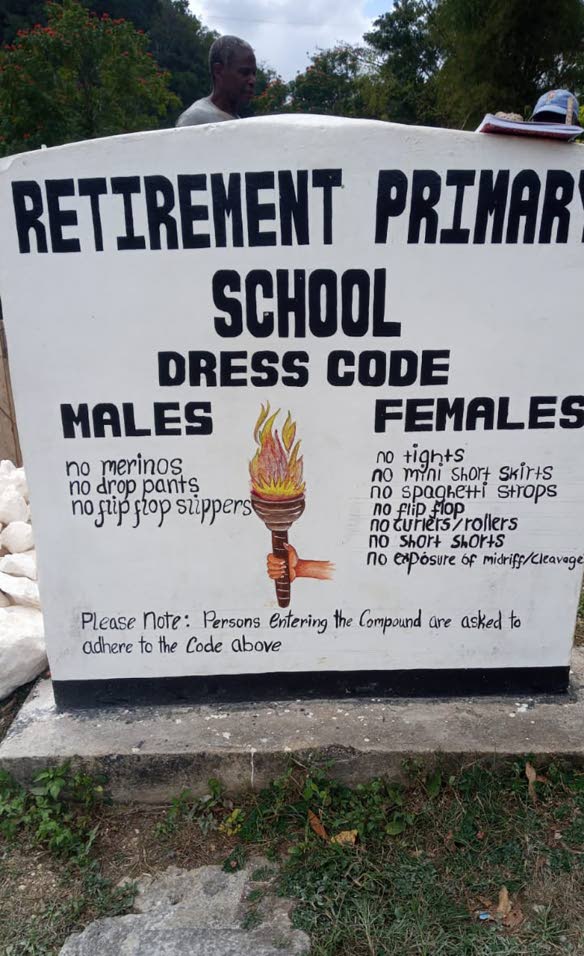 RETIREMENT PRIMARY
SCHOOL
DRESS CODE
MALES
no merinos
no drop pants
no flip flop slippers
FEMALES
no tights
no mini short skirts
no spaghetti strops
no flip flop
no curlers/rollers
no short shorts
no exposure of midriff/cleavage
Please Note: Persons Entering the Compound are asked to
adhere to the Code above